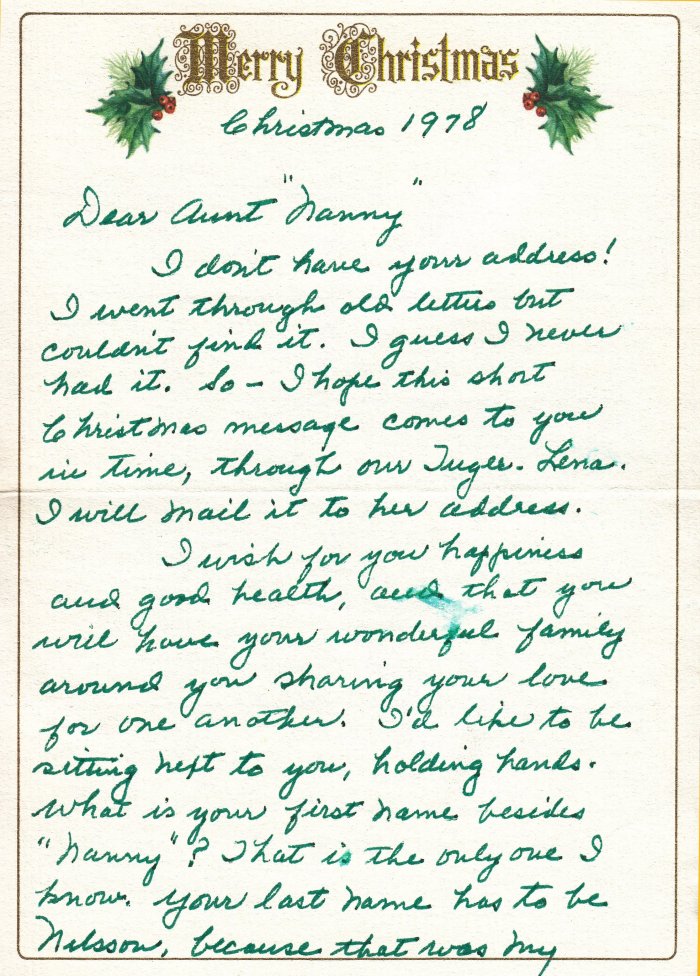 Merry Christmas
Christmas 1978
Dear Aunt "Nanny"
I don't have your address!
I went through old letters but
couldn't find it. I guess I never
had it. So - I hope this short
Christmas message comes to you
in time, through our Inger - Lena.
I will mail it to her address.
I wish for you happiness
and good health, and that you
will have your wonderful family
around you sharing your love
for one another. I'd like to be
sitting next to you, holding hands.
What is your first name besides
"Nanny"? That is the only one I
know. Your last name has to be
Nilsson, because that was my